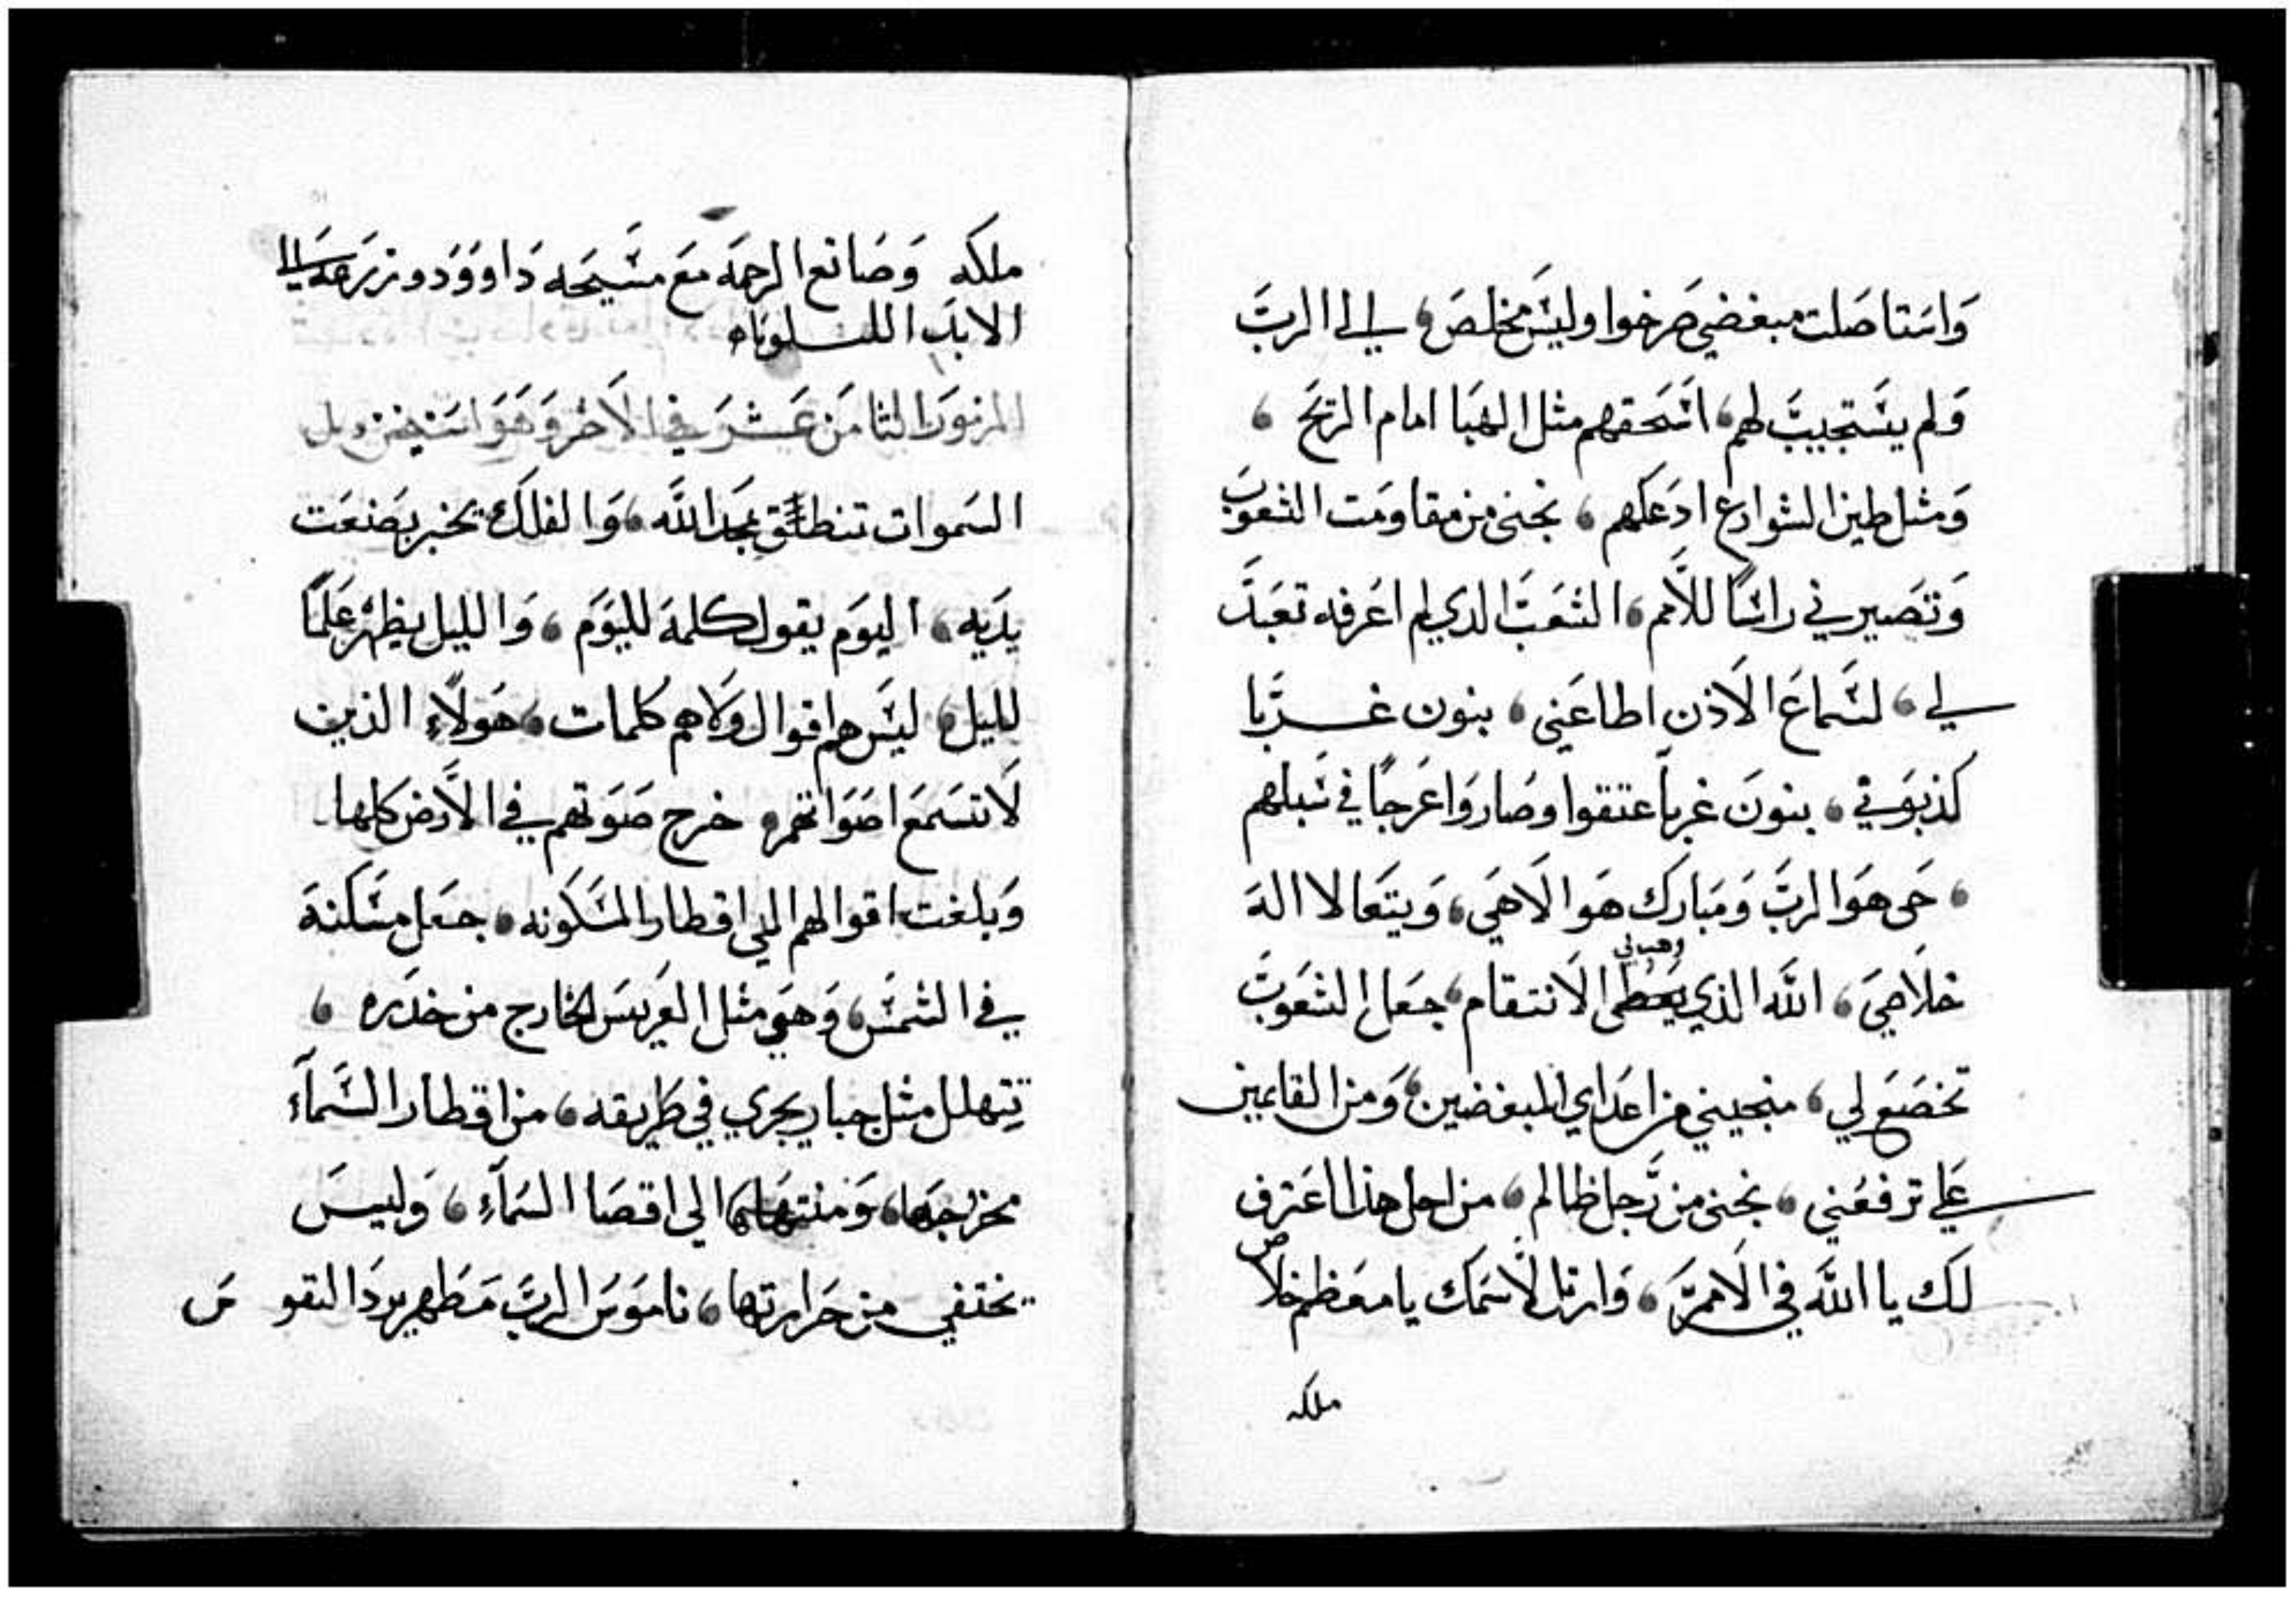 وَاستاصَلت مبغضي صَرخوا وليسَ مخلصَ، الي الربَ
وَلم يستجيبَ لهم، اسَحقهم مثل الهبَا امام الريَح،
وَمثل طين الشوارع ادعَكهم، نجنى من مقاومَت الشعوبَ
وَتصَيرني راسًا للأمم، الشعَبَ الدي لم اعَرفه تعَبدَ
لي، لسَماعَ الاَذن اطاعَنى، بنون غربَا
كذبوَني، بنونَ غرباً عتقوا وصَاروَا عَرجًا في سَبلهم
، حَى هوَ الربَ وَمَبارك هوَ الاَهَي، وَيتعَالا الهَ
خلاَصَي، اللهَ الذي يعَطى الاَنتقام، جعَل الشعَوبَ
وهب لي
تخضَع لي، منجيني من اعدَاي المبغضين، وَمن القايمين
عَلي ترفعَني، نجنى من رَجل ظالم، من اجل هذا اعَترف
لكَ يا اللهَ في الاَممَ، وَارتل لاَسمَك يا معَظم خلاص
ملكه
ملكه وَصَانع الرحمَه مَع مسَيحَه دَاووَد وزرَعَه الي
الابدَ الليلوياه
المزمورَ الثامنَ عَشرَ في الاَخر وَهَوَ
السَموات تنطلَق بمجَد اللهَ، وَالفلكَ يخبر بصَنعَت
يدَيه، اليوَم يقول كلمة لليوَم، وَالليل يظهر عَلمًا
لليل، ليسَ هم اقوال وَلاهم كلمات، هَولاَءِ الذين
لاَ تسَمعَ اصَوَاتهم، خرج صَوَتهم في الاَرض كلها
وَبلغت اقوالهم الى اقطار المسَكوَنه، جعَل مسَكنهَ
في الشمسَ، وَهَي مثل العَريسَ الخارج من خدَره،
تتهلل مثل جبار يجري في طَريقه، من اقطار السَّمآء
مخرجهَا، وَمنتهاها الي اقصَا السَمآءِ، وَليسَ
يختفي من حَرارتها، ناموَسَ الربَ مَطهر يردَ النفوسَ